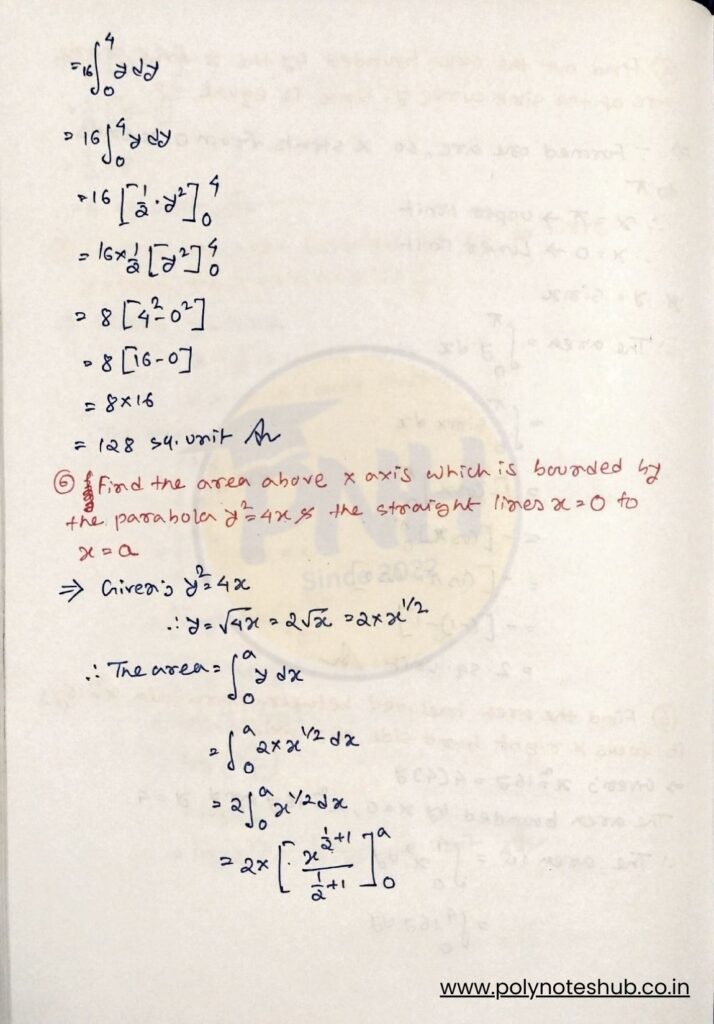 = 16 ∫₀⁴ y dy
= 16 ∫₀⁴ y dy
= 16 [½ · y²]₀⁴
= 16 × ½ [y²]₀⁴
= 8 [4² - 0²]
= 8 [16 - 0]
= 8 × 16
= 128 sq. unit
⑥ Find the area above x axis which is bounded by
the parabola y² = 4x & the straight lines x = 0 to
x = a
⇒ Given: y² = 4x
∴ y = √4x = 2√x = 2 × x^1/2
∴ The area = ∫₀ᵃ y dx
= ∫₀ᵃ 2 × x^1/2 dx
= 2 ∫₀ᵃ x^1/2 dx
= 2 × [x^(½+1) / (½+1)]₀ᵃ
PNH
Since 2022
www.polynoteshub.co.in